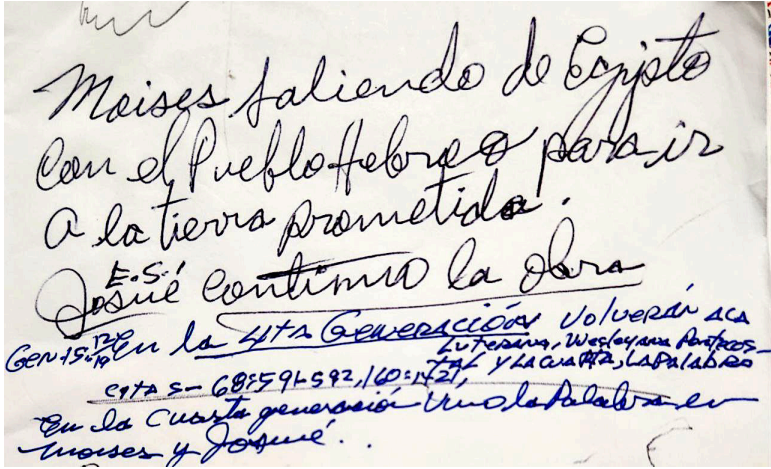 Moises saliendo de Egipto
Con el Pueblo Hebreo para ir
A la tierra prometida.
E.S.
Josué continuo la obra
Gen-15:12-19 En la 4ta Generación Volverán ACA
Luterana, Wesleyana Pentecos-
tal Y LA CUARTA, LA PALABRA
citas- 68:591-592, 160:
En la Cuarta generación Vino la Palabra en
Moises y Josué..